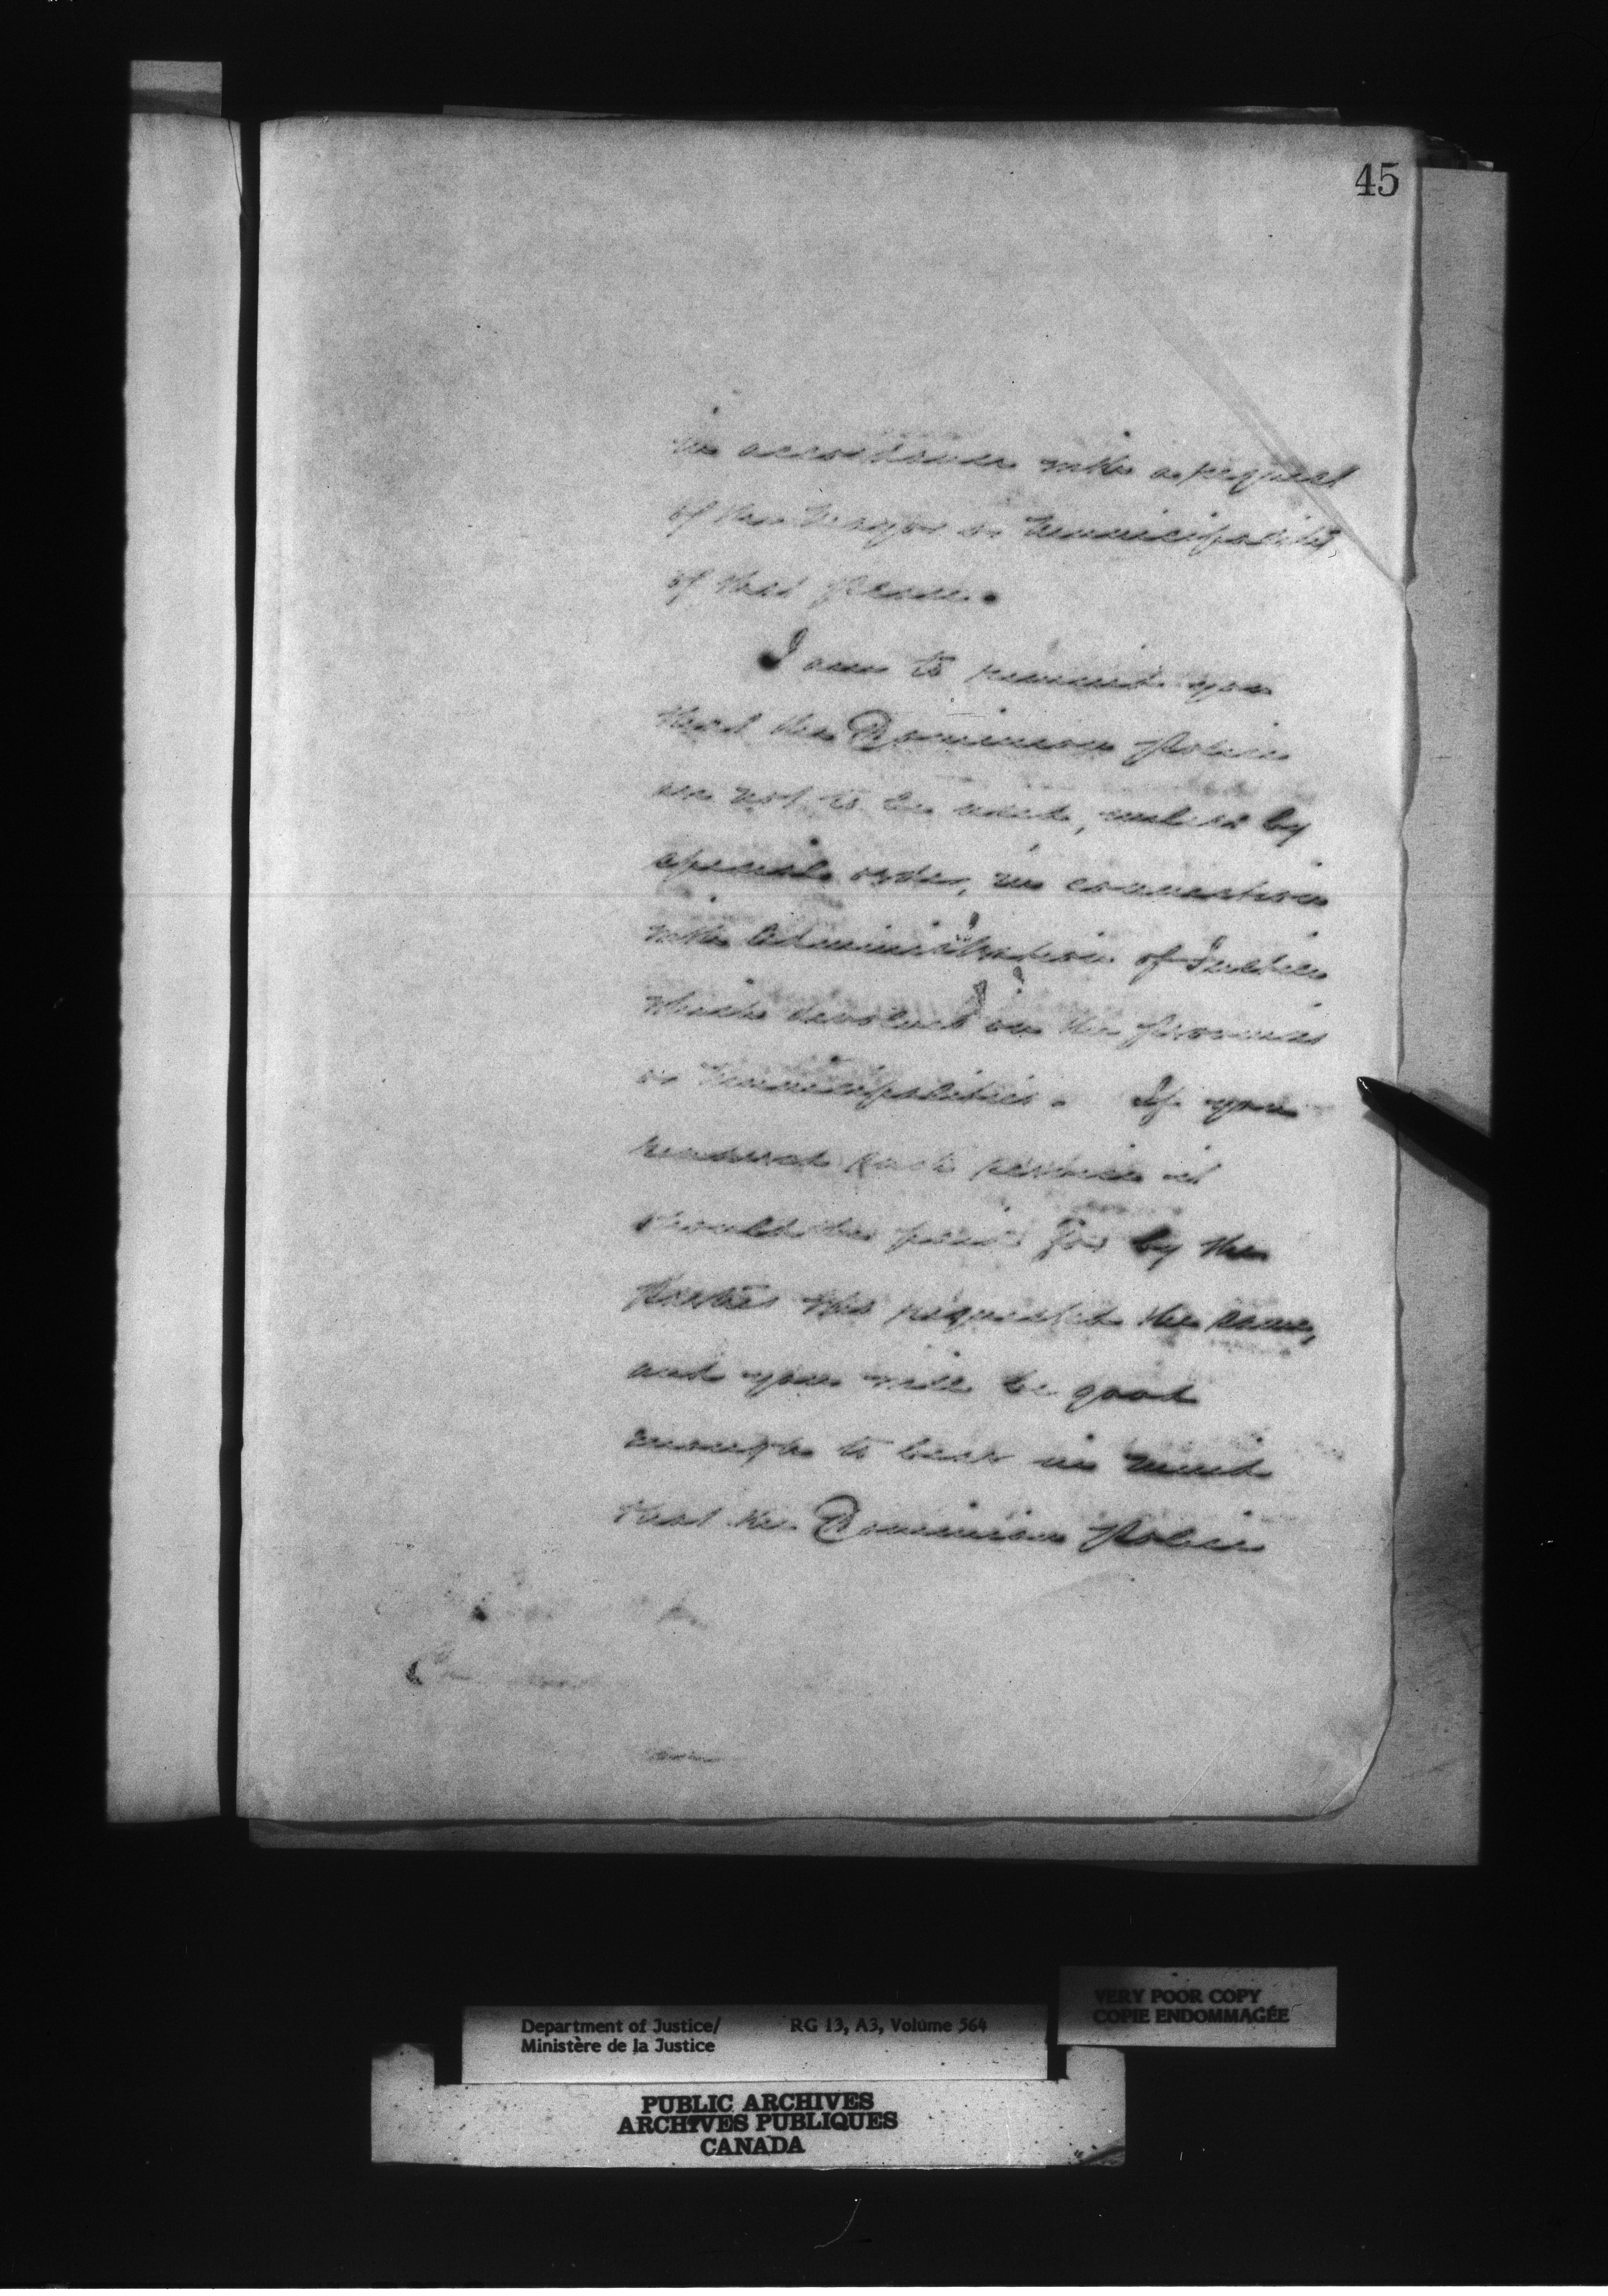 45
in accordance with a request
of the Mayor or Municipality
of that place.
I am to remind you
that the Dominion Police
are not to be used, unless by
special order, in connection
with Administration of Justice
which devolves on the provinces
or Municipalities. If you
rendered such service it
should be paid for by the
parties who requested the same,
and you will be good
enough to bear in mind
that the Dominion Police
VERY POOR COPY
COPIE ENDOMMAGÉE
Department of Justice/ RG 13, A3, Volume 564
Ministère de la Justice
PUBLIC ARCHIVES
ARCHIVES PUBLIQUES
CANADA